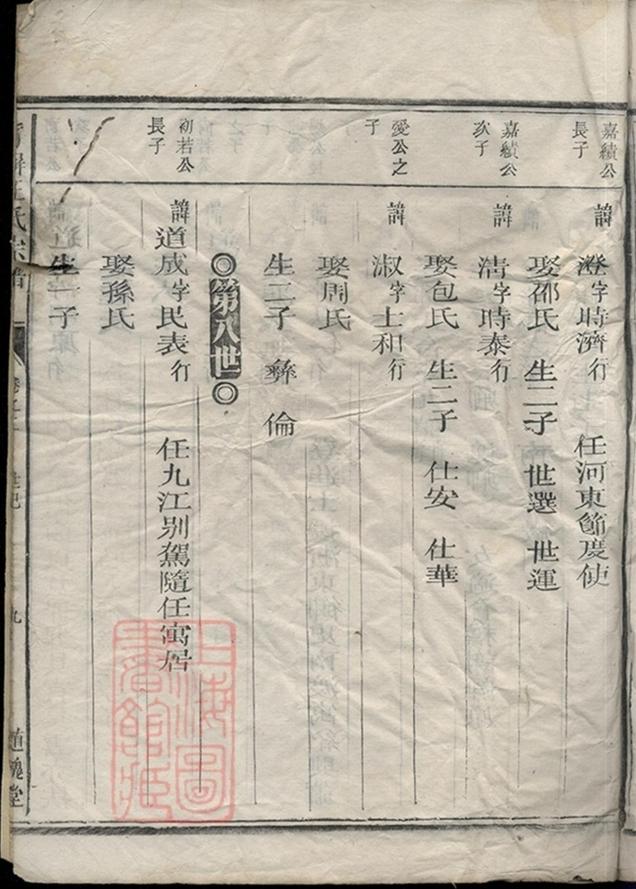 嘉績公
長子
諱澄字時濟行 任河東節度使
娶邵氏 生二子 世選 世運
嘉績公
次子
諱清字時泰行
娶包氏 生二子 仕安 仕華
愛公之
子
諱淑字士和行
娶周氏
生二子 彝 倫
◎第八世◎
初若公
長子
諱道成字民表行 任九江别駕隨任寓居
娶孫氏
生一子
氏宗譜
九
道槐堂
上海圖書館藏